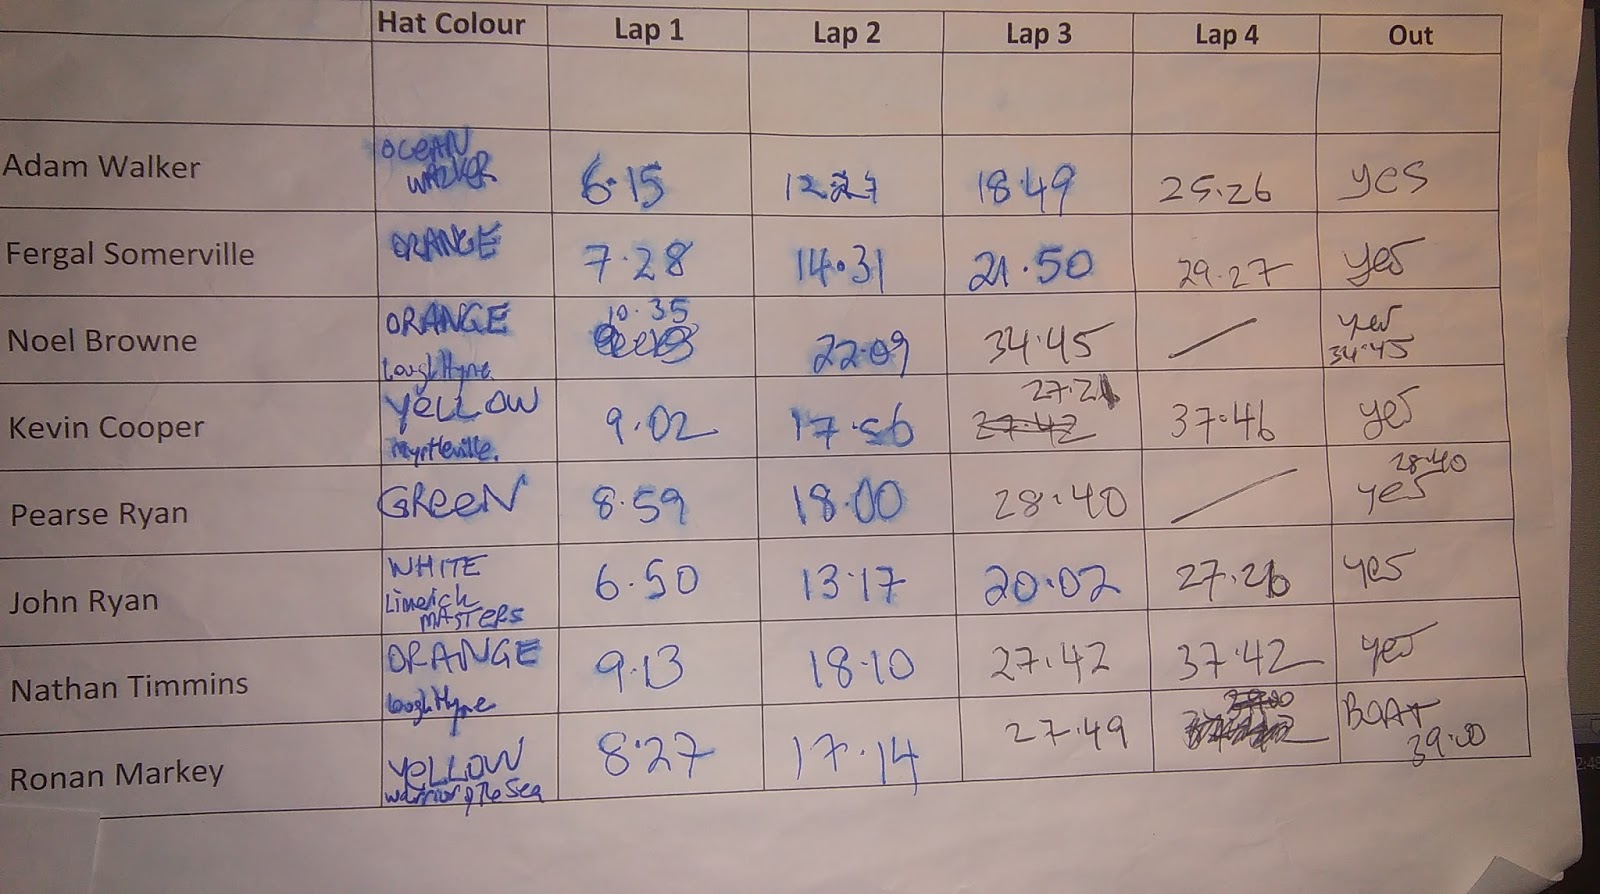 Hat Colour Lap 1 Lap 2 Lap 3 Lap 4 Out
Adam Walker OCEAN WALKER 6.15 12.27 18.49 25.26 yes
Fergal Somerville ORANGE 7.28 14.31 21.50 29.27 yes
Noel Browne ORANGE Lough Hyne 10.35 22.09 34.45 yes 34.45
Kevin Cooper YELLOW Myrtleville. 9.02 17.56 27.21 27.42 37.46 yes
Pearse Ryan GREEN 8.59 18.00 28.40 28.40 yes
John Ryan WHITE Limerick MASTERS 6.50 13.17 20.02 27.26 yes
Nathan Timmins ORANGE Lough Hyne 9.13 18.10 27.42 37.42 yes
Ronan Markey YELLOW warrior of the Sea 8.27 17.14 27.49 BOAT 39.00